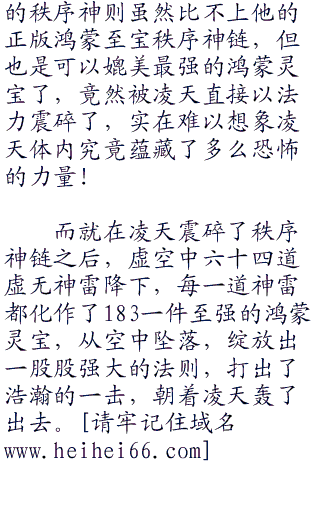 的秩序神则虽然比不上他的
正版鸿蒙至宝秩序神链，但
也是可以媲美最强的鸿蒙灵
宝了，竟然被凌天直接以法
力震碎了，实在难以想象凌
天体内究竟蕴藏了多么恐怖
的力量！
而就在凌天震碎了秩序
神链之后，虚空中六十四道
虚无神雷降下，每一道神雷
都化作了183一件至强的鸿蒙
灵宝，从空中坠落，绽放出
一股股强大的法则，打出了
浩瀚的一击，朝着凌天轰了
出去。[请牢记住域名
www.heihei66.com]